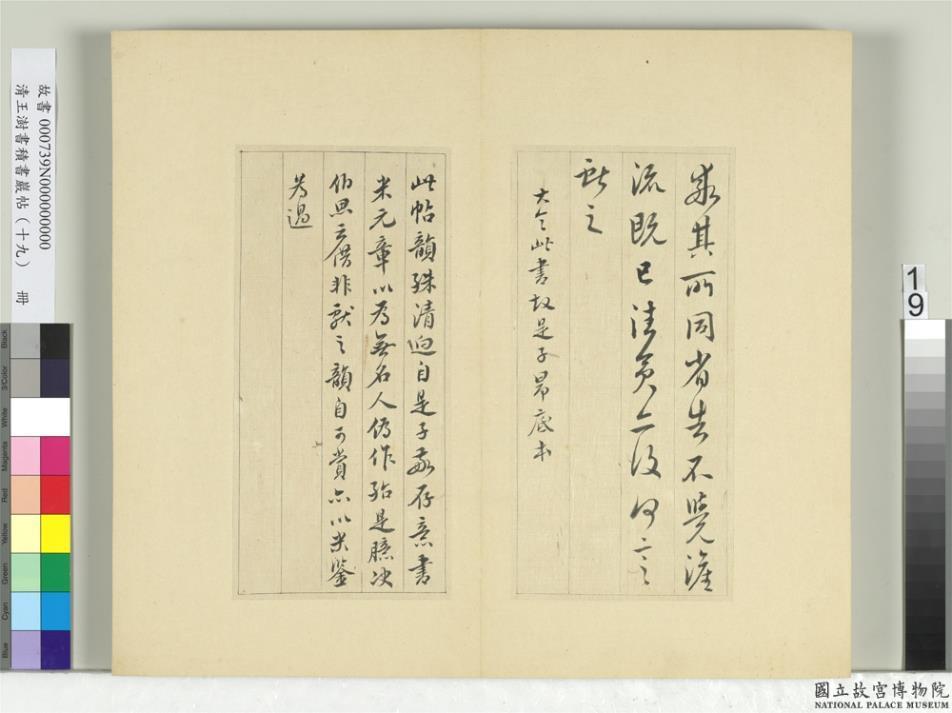 故書 000739N000000000
清王澍書積書巖帖（十九） 冊
19
求其所同省告不覺涕
流既已往矣亦復何言
獻之
大令此書故是子昂底本
此帖韻殊清迥自是子敬存意書
米元章以為無名人偽作殆是臆決
伯思云借非獻之韻自可賞亦以米鑒
為過
Black
3/Color
White
Magenta
Red
Yellow
Green
Cyan
Blue
國立故宮博物院
NATIONAL PALACE MUSEUM